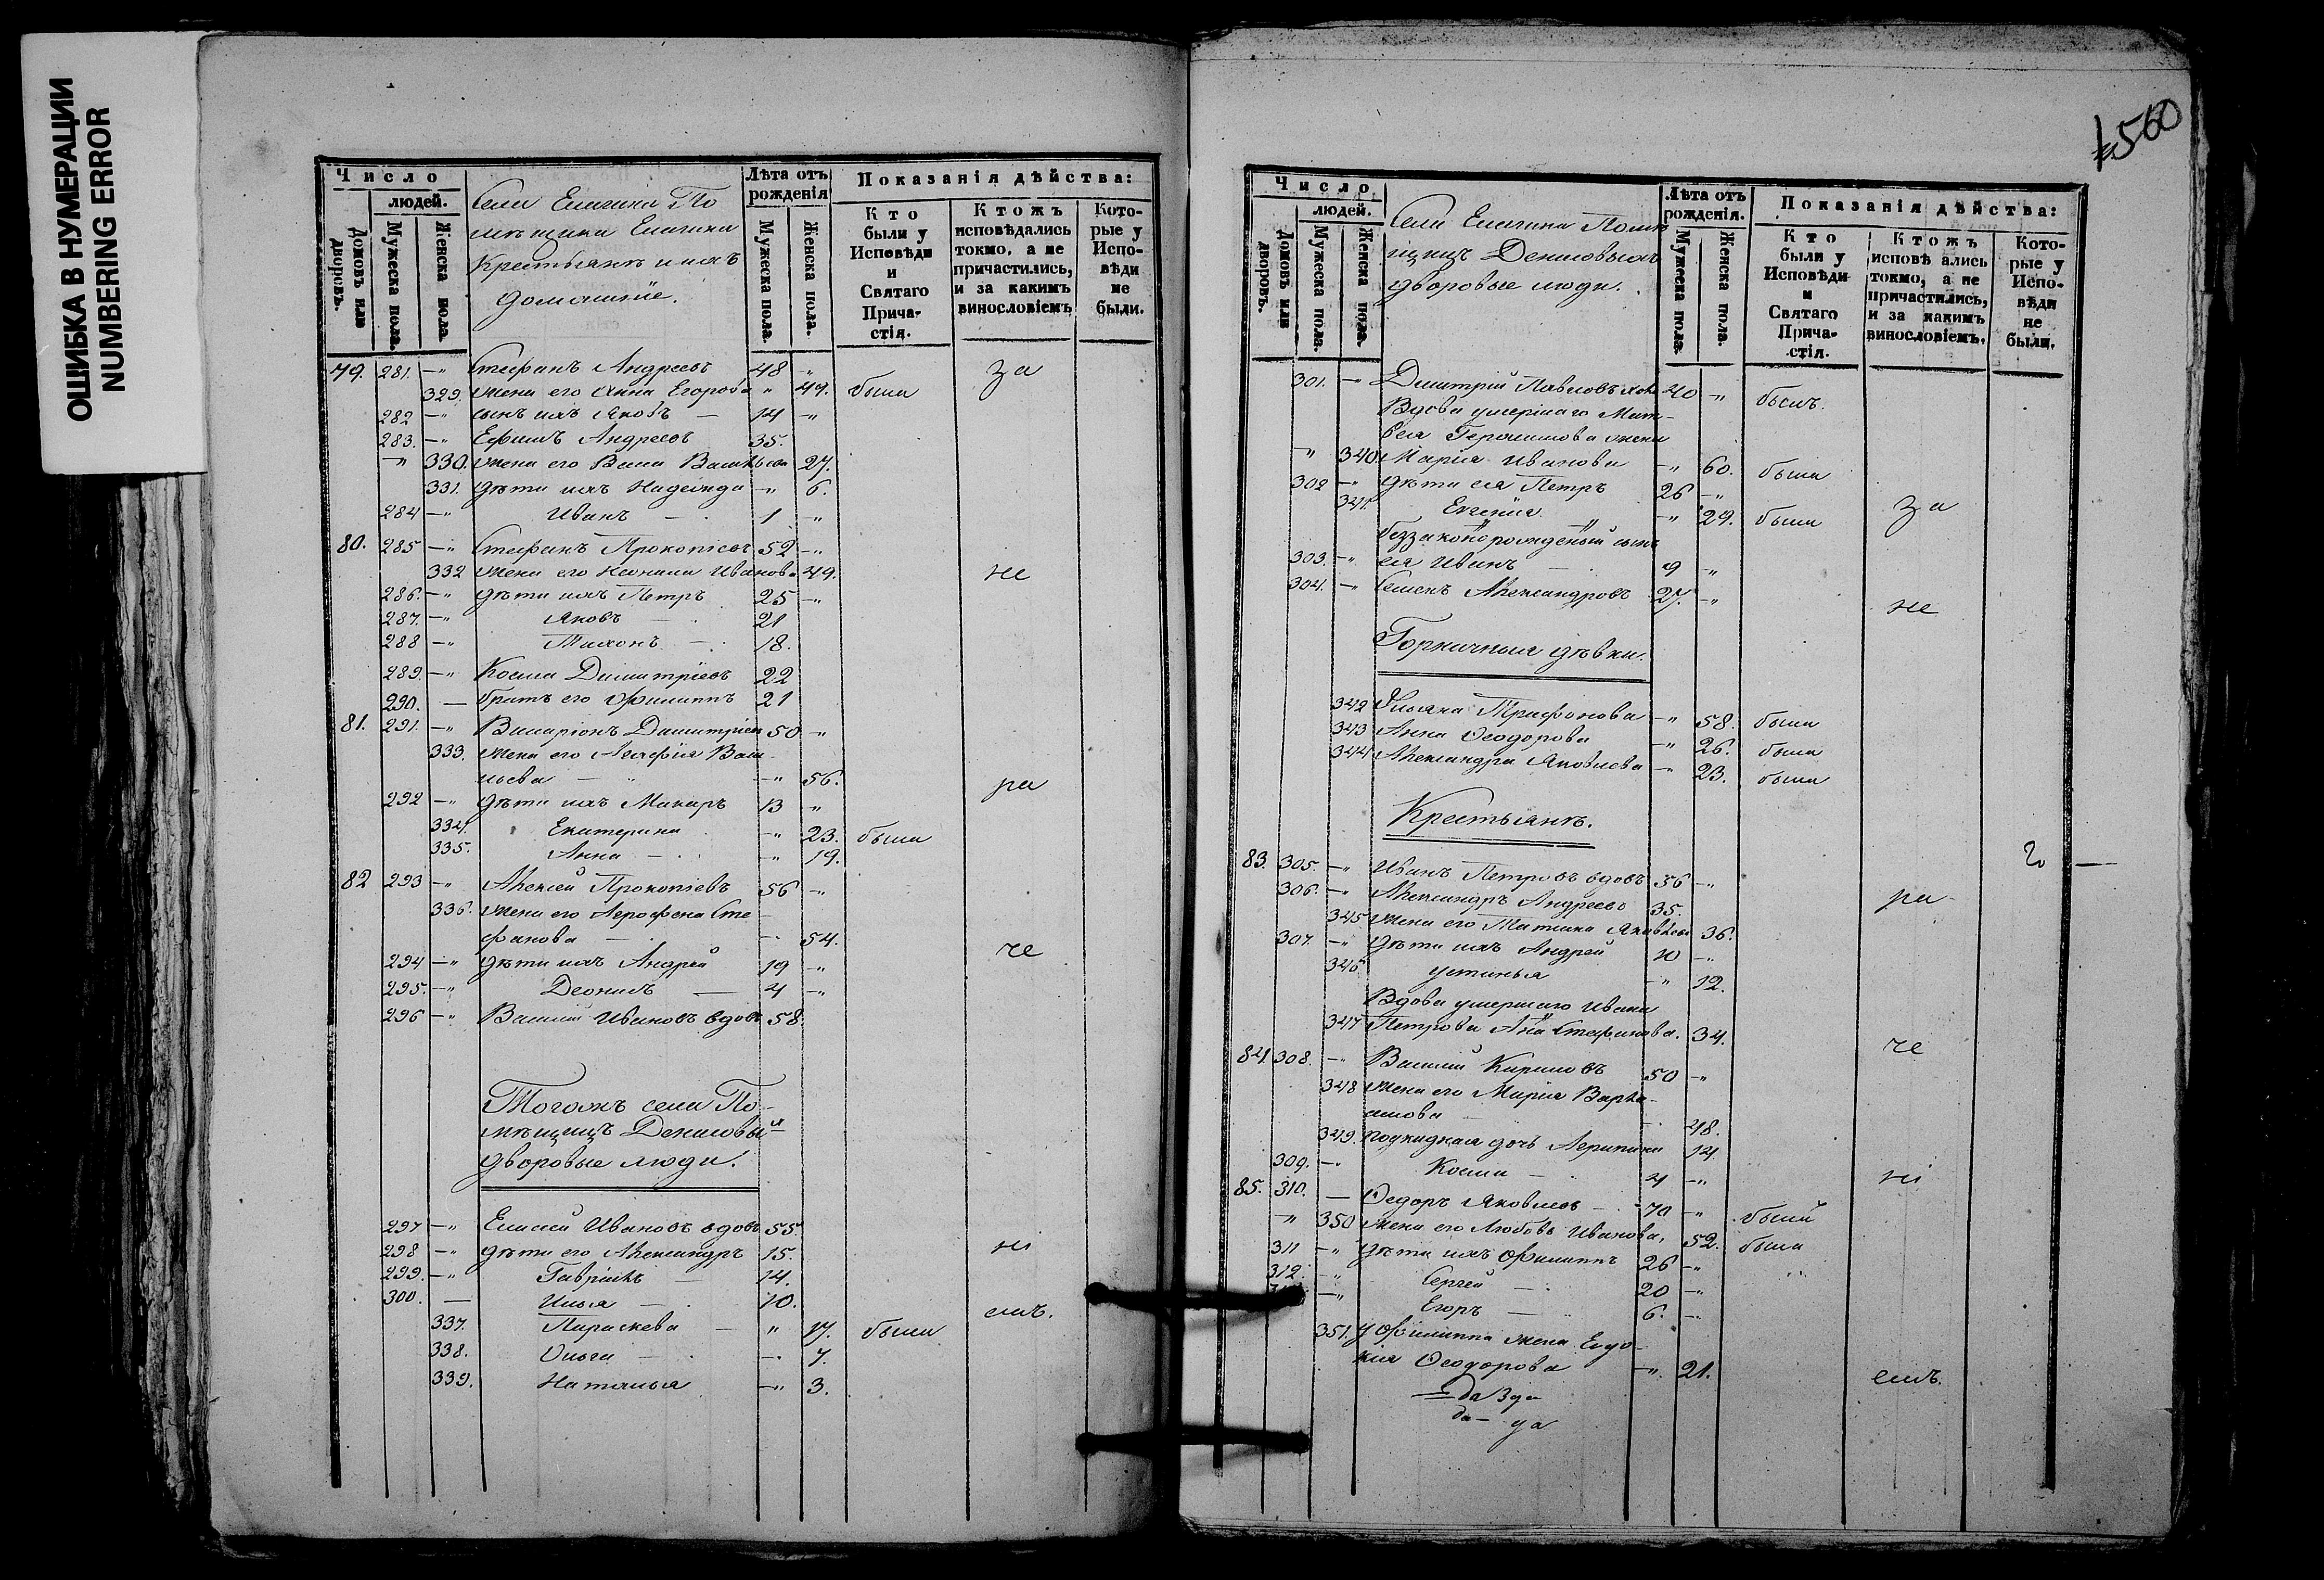 ОШИБКА В НУМЕРАЦИИ
NUMBERING ERROR
Число
людей.
Домовъ или дворовъ.
Мужеска пола.
Женска пола.
Села Елагина По
мѣщика Елагина
Крестьянѣ и ихъ
домашніе.
Лѣта отъ рожденія
Мужеска пола.
Женска пола.
Показанія дѣйства:
Кто были у Исповѣди и Святаго Прича-стія.
Ктожъ исповѣдались токмо, а не причастились, и за какимъ винословіемъ
Кото-рые у Испо-вѣди не были.
79. 281. -" Стефанъ Андреевъ 48 -" за
329. жена его Анна Егорова " 47. была
282 -" сынъ ихъ Яковъ — 14 -"
283. -" Ефимъ Андреевъ 35.
-" 330. жена его Васильева 27.
331. дѣти ихъ Надежда -" 6.
284 -" Иванъ — 1 -"
80. 285 -" Стефанъ Прокопіевъ 52 -"
332 жена его Иванова 49. не
286. -" дѣти ихъ Петръ 25 -"
287. -" Яковъ — 21
288 -" Тихонъ — 18.
289. -" Косма Димитріевъ 22
290. — братъ его Филиппъ 21
81. 291. -" Виларіонъ Димитріев 50 -"
333. жена его Агафія Васи
льева — " -" 56. ра
292 -" дѣти ихъ Макаръ 13 "
334. Екатерина -" 23. была
335. Анна — -" 19.
82 293 -" Алексей Прокопіевъ 56 -"
336. жена его Агрофена Сте
фанова — - 54. че
294 -" дѣти ихъ Андрей 19 -"
295. -" Леонидъ — 4 -"
296 -" Василій Ивановъ вдовъ 58.
Тогожъ села По-
мѣщицъ Денисовых
дворовые люди.
297 -" Елисей Ивановъ вдовъ 55.
298 -" дѣти его Александръ 15. ні
299. -" Гавріилъ — 14.
300. — Илья — 10. емъ.
337. Параскева — " 17. была
338. Ольга — - 7.
339. Наталья -" 3.
560
Число
людей.
Домовъ или дворовъ.
Мужеска пола.
Женска пола.
Села Елагина Помѣ
щицъ Денисовыхъ
дворовые люди.
Лѣта отъ рожденія.
Мужеска пола
Женска пола.
Показанія дѣйства:
Кто были у Исповѣди и Святаго Прича-стія.
Ктожъ исповѣ ались токмо, а не причастились, и за какимъ винословіемъ.
Кото-рые у Испо-вѣди не были.
301. — Димитрій Павловъ 40 -" былъ.
Вдова умершаго Мат-
вея Герасимова жена
" 340. Марія Иванова -" 60. была
302 -" дѣти ея Петръ 26 -" за
341. Евгенія -" 29. была
беззаконорожденый сынъ
303. -" ея Иванъ — 9 -"
304. -" Семенъ Александровъ 27. -" не
Горничныя дѣвки.
342 Ульяна Трифонова -" 58. была
343 Анна Ѳеодорова -" 26. была
344 Александра Яковлева -" 23. была
Крестьянѣ.
83. 305. -" Иванъ Петровъ вдовъ 56 -" го —
306. -" Александръ Андреевъ 35. ра
345 жена его Татіана Яковлева 36.
307. -" дѣти ихъ Андрей 10 -"
346. Устинья -" 12.
Вдова умершаго Ивана
347 Петрова Анна Стефанова. 34. че
84. 308. -" Василій Кириловъ 50 -"
348 жена его Марія Варла-
амова — - 48.
349. подкидная дочь Агрипина 14
309. -" Косма — 4 -" ні
85. 310. — Ѳедоръ Яковлевъ — 70 -" былъ
" 350 жена его Любовь Иванова, 52. была
311 -" дѣти ихъ Филиппъ 26 -"
312. -" Сергей — 20 -"
-" Егоръ — 6. -"
351. у Филиппа жена Евдо-
кія Ѳеодорова -" 21. емъ.